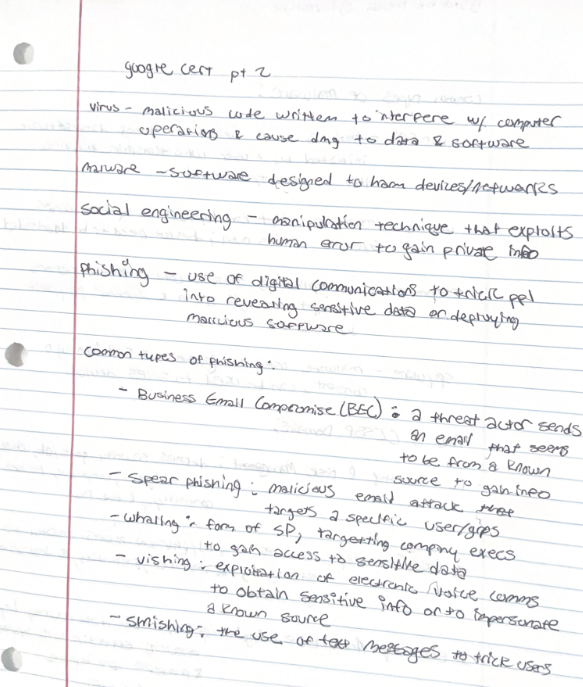 google cert pt 2
virus - malicious code written to interfere w/ computer
operations & cause dmg to data & software
malware - software designed to harm devices/networks
social engineering - manipulation technique that exploits
human error to gain private info
phishing - use of digital communications to trick ppl
into revealing sensitive data or deploying
malicious software
common types of phishing:
- Business Email Compromise (BEC): a threat actor sends
an email that seems
to be from a known
source to gain info
- spear phishing: malicious email attack that
targets a specific user/grps
- whaling: form of SP, targetting company execs
to gain access to sensitive data
- vishing: exploitation of electronic voice comms
to obtain sensitive info or to impersonate
a known source
- smishing: the use of text messages to trick users